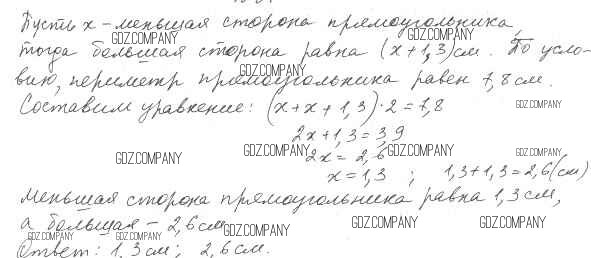 Пусть x - меньшая сторона прямоугольника,
GDZ.COMPANY GDZ.COMPANY
тогда большая сторона равна (x+1,3)см. По усло-
GDZ.COMPANY
вию, периметр прямоугольника равен 7,8 см.
Составим уравнение: (x+x+1,3)·2=7,8
GDZ.COMPANY
2x+1,3=3,9
GDZ.COMPANY GDZ.COMPANY GDZ.COMPANY GDZ.COMPANY
2x=2,6
x=1,3 ; 1,3+1,3=2,6(см)
Меньшая сторона прямоугольника равна 1,3 см,
а большая - 2,6 см
GDZ.COMPANY GDZ.COMPANY GDZ.COMPANY GDZ.COMPANY GDZ.COMPANY
Ответ: 1,3 см; 2,6 см.